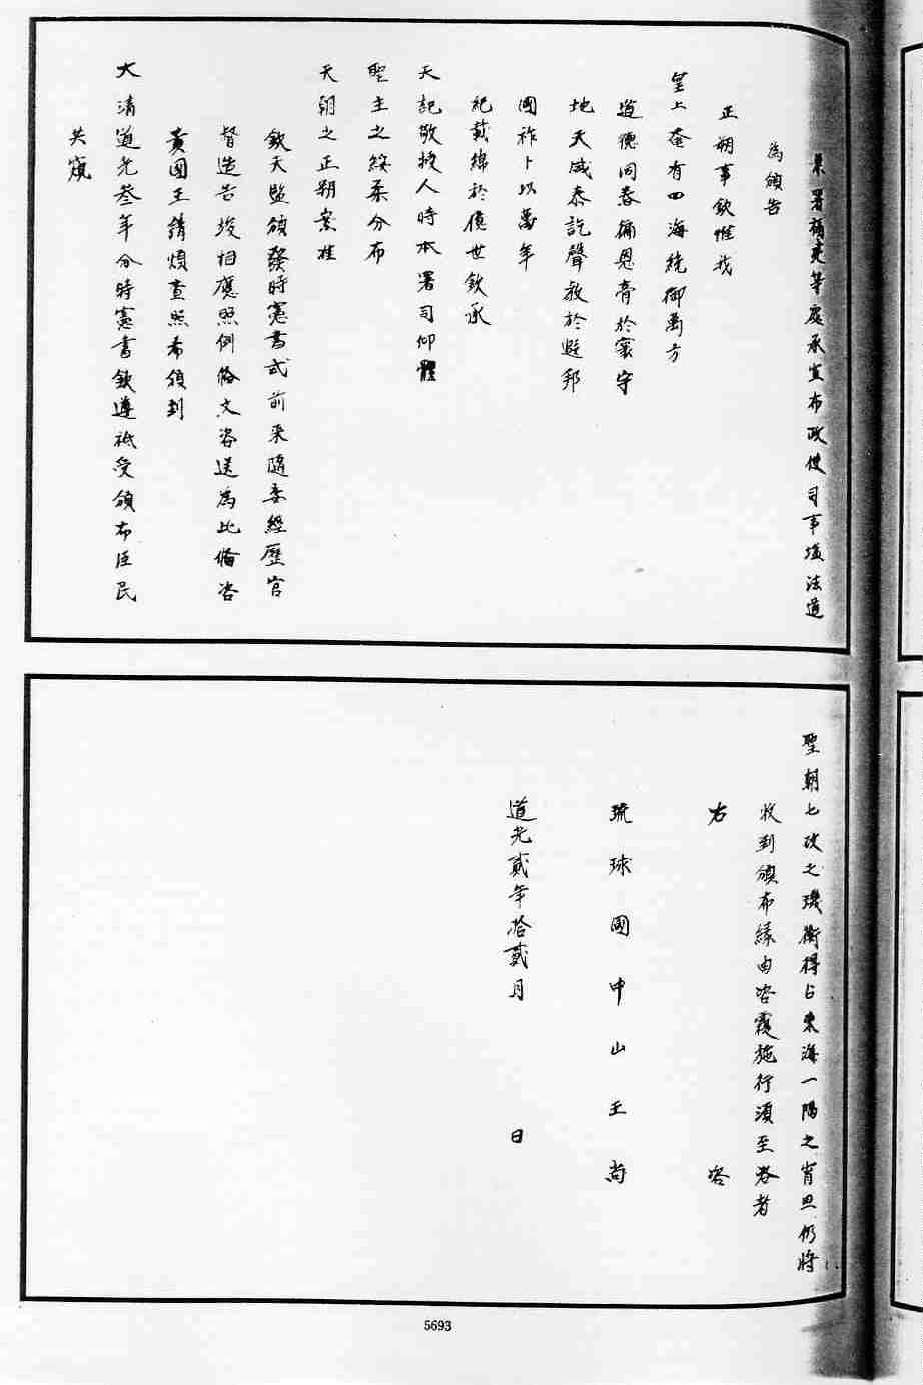 兼署福建等處承宣布政使司事塩法道
為頒告
正朔事欽惟我
皇上奄有四海統御萬方
道德同春徧恩膏於寰宇
地天咸泰訖聲教於遐邦
國祚卜以萬年
紀載綿於億世欽承
天記敬授人時本署司仰體
聖主之綏柔分布
天朝之正朔案准
欽天監頒發時憲書式前來隨委經歷官
督造告竣相應照例俻文咨送為此俻咨
貴國王請煩查照希頒到
大清道光叁年分時憲書欽遵祗受頒布臣民
共窺
聖朝七政之璣衡得占東海一陽之 仍將
收到頒布緣由咨覆施行須至咨者
右 咨
琉球國中山王尚
道光貳年拾貳月 日
5693